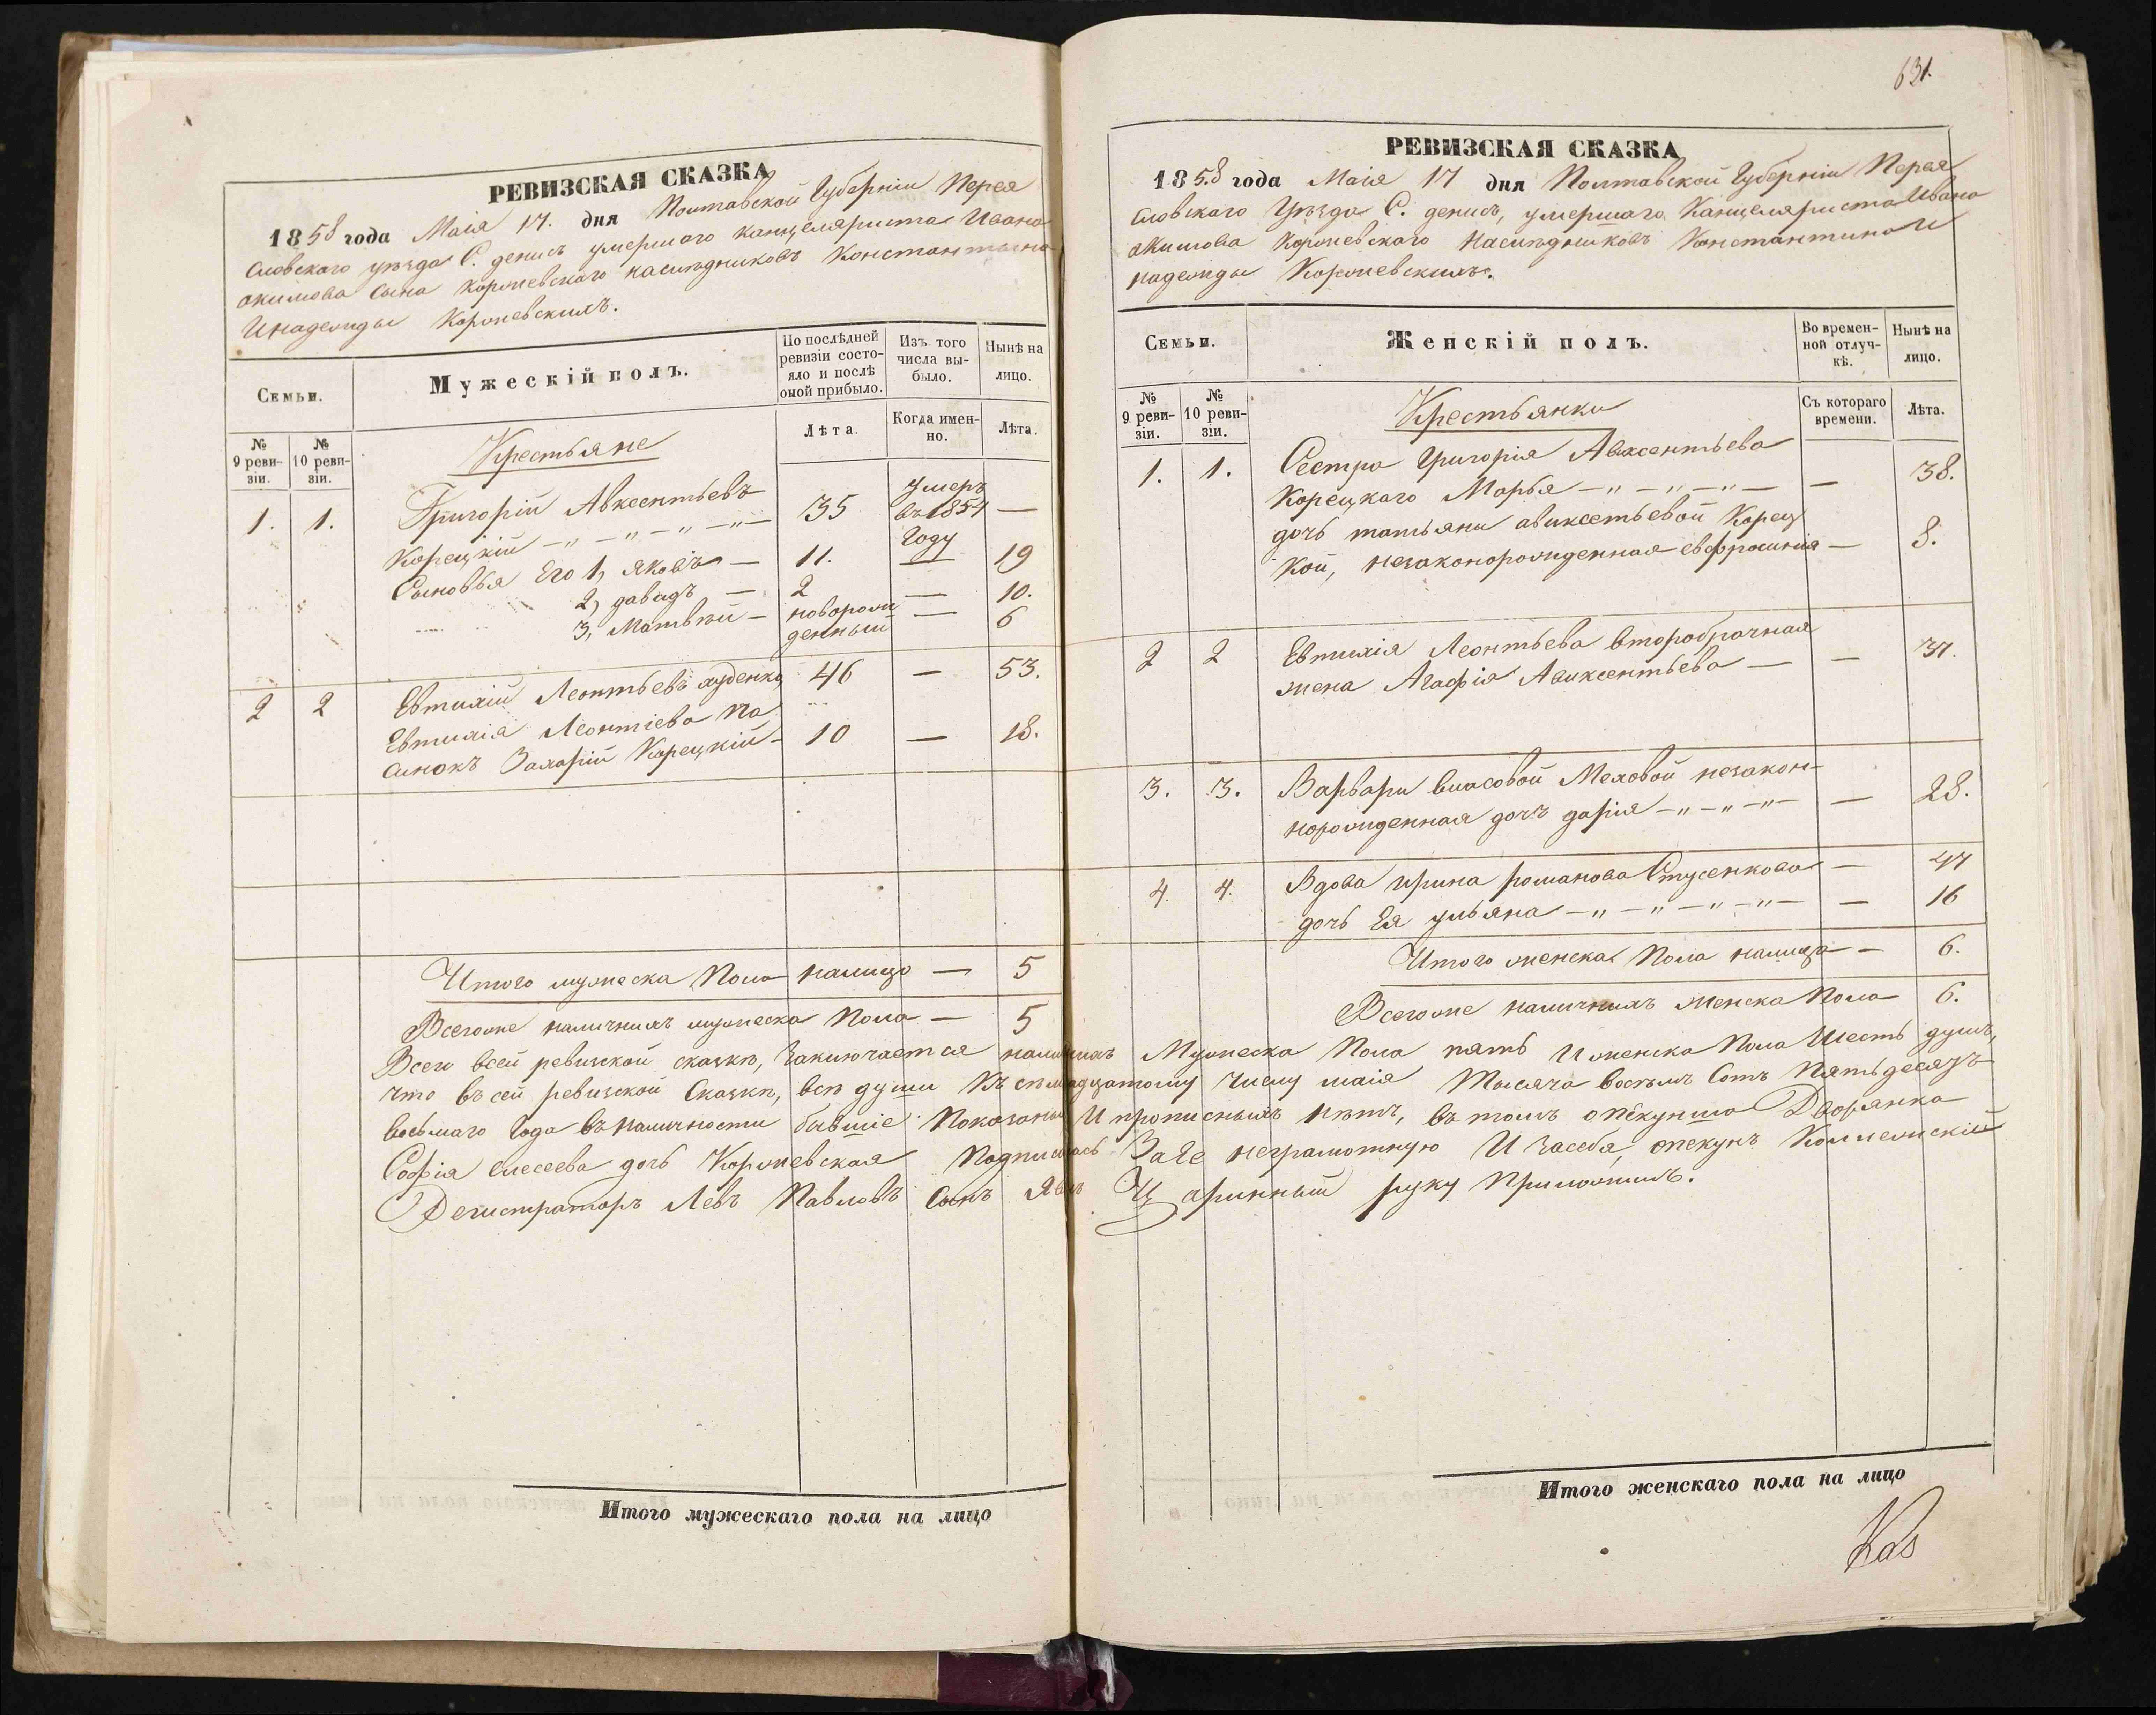 РЕВИЗСКАЯ СКАЗКА
1858 года Маія 17. дня Полтавской Губерніи Перея
словскаго уѣзда С. денисъ умершаго канцеляриста Ивана
акимова сына королевскаго наслѣдниковъ Константина
Инадежды Королевскихъ.
Семьи.
Мужескій полъ.
По послѣдней ревизіи состояло и послѣ оной прибыло.
Изъ того числа выбыло.
Нынѣ на лицо.
№ 9 ревизіи.
№ 10 ревизіи.
Крестьяне
Лѣта.
Когда именно.
Лѣта.
1. 1. Григорій Авксентьевъ
Корецкій — " — " — " — 35 умеръ въ 1854 Году —
Сыновья Его 1, яковъ — 11. — 19
2, давидъ — 2 — 10.
3, Матвѣй — новорожденный — 6
2 2 Евтихій Леонтьевъ худенко 46 — 53.
Евтихія Леонтіева па
синокъ Захарій Корецкій — 10 — 18.
Итого мужеска Пола налицо — 5
Всегоже наличнихъ мужеска Пола — 5
РЕВИЗСКАЯ СКАЗКА
631.
1858 года Маія 17 дня Полтавской Губерніи Перея
словскаго Уѣзда С. денисъ, умершаго Канцеляриста Ивана
акимова Королевскаго Наслѣдниковъ Константина И
надежды Королевскихъ.
Семьи.
Женскій полъ.
Во временной отлучкѣ.
Нынѣ на лицо.
№ 9 ревизіи.
№ 10 ревизіи.
Крестьянки
Съ котораго времени.
Лѣта.
1. 1. Сестра Григорія Авксентьева
Корецкаго Марья — " — " — " — — 38.
дочь татьяни авиксетьевой Корец
кой, незаконорожденная евфросинія — 8.
2 2 Евтихія Леонтьева второбрачная
жена Агафія Авиксентьева — — 37.
3. 3. Варвари власовой Меховой незакон-
норожденная дочъ дарія — " — " — " — — 28.
4. 4. Вдова ирина романова Стусенкова — 47
дочь Ея ульяна — " — " — " — " — — 16
Итого женска Пола налицо — 6.
Всегоже наличнихъ женска Пола 6.
Всего всей ревизской сказкѣ, заключается наличнихъ Мужеска Пола пять И женска Пола Шесть душъ,
что въ сей ревизской Сказкѣ, всѣ души къ семнадцатому числу маія Тысяча восемь Сотъ Пятьдесятъ
восьмаго Года въ наличности бывшіе Показаны И прописныхъ нѣтъ, въ томъ опѣкунша Дворянка
Софія елесеева дочь Королевская Подписалась За Ее неграмотную И засебя, опекунъ Коллежскій
Регистраторъ Левъ Павловъ Сынъ руку Приложилъ.
Итого мужескаго пола на лицо
Итого женскаго пола на лицо